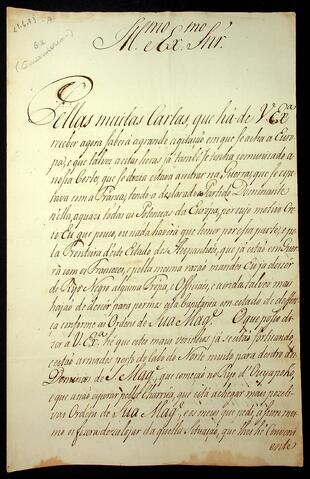 Ill.mo e Ex.mo Snr.
Pellas muitas Cartas, que há de V. Ex.a
receber agora saberá a grande agitação em que se acha a Euro-
pa, e que talvez a estas horas já tambem se tenha comunicado a
nossa Corte, que se dezia estava a entrar na Guerra, que se espe-
tava com a França, tendo-a declarado o Partido Dominante
n'ella, a quazi todas as Potencias da Europa, por cujo motivo
que pouco, ou nada haverá que temer por esta parte, e pe-
la Fronteira d'este Estado dos Hespanhóes, que já estão em Guer-
rá com os Francezes, e pella mesma razão mandei cá já descer
do Rio Negro alguma Tropa, e Officiaes, e ainda talvez mais
hajão de descer para pormos esta Capitania em estado de deffen-
ça conforme as Ordens de Sua Mag.e O que posso di-
zer a V. Ex.a hé que estes maus vezinhos já se estão fortificando,
e estão armados perto do Cabo do Norte muito para dentro dos
Dominios de S. Mag.e que começão no Rio d' Oyapock,
e que anno esperar pella Charrúa, que está a chegar mais pozeti-
vas Ordens de Sua Mag.e e os meyos, que pedi, a fim
mo os fizera dezalojar da quella Situação, que lhes hé Conveni
ente